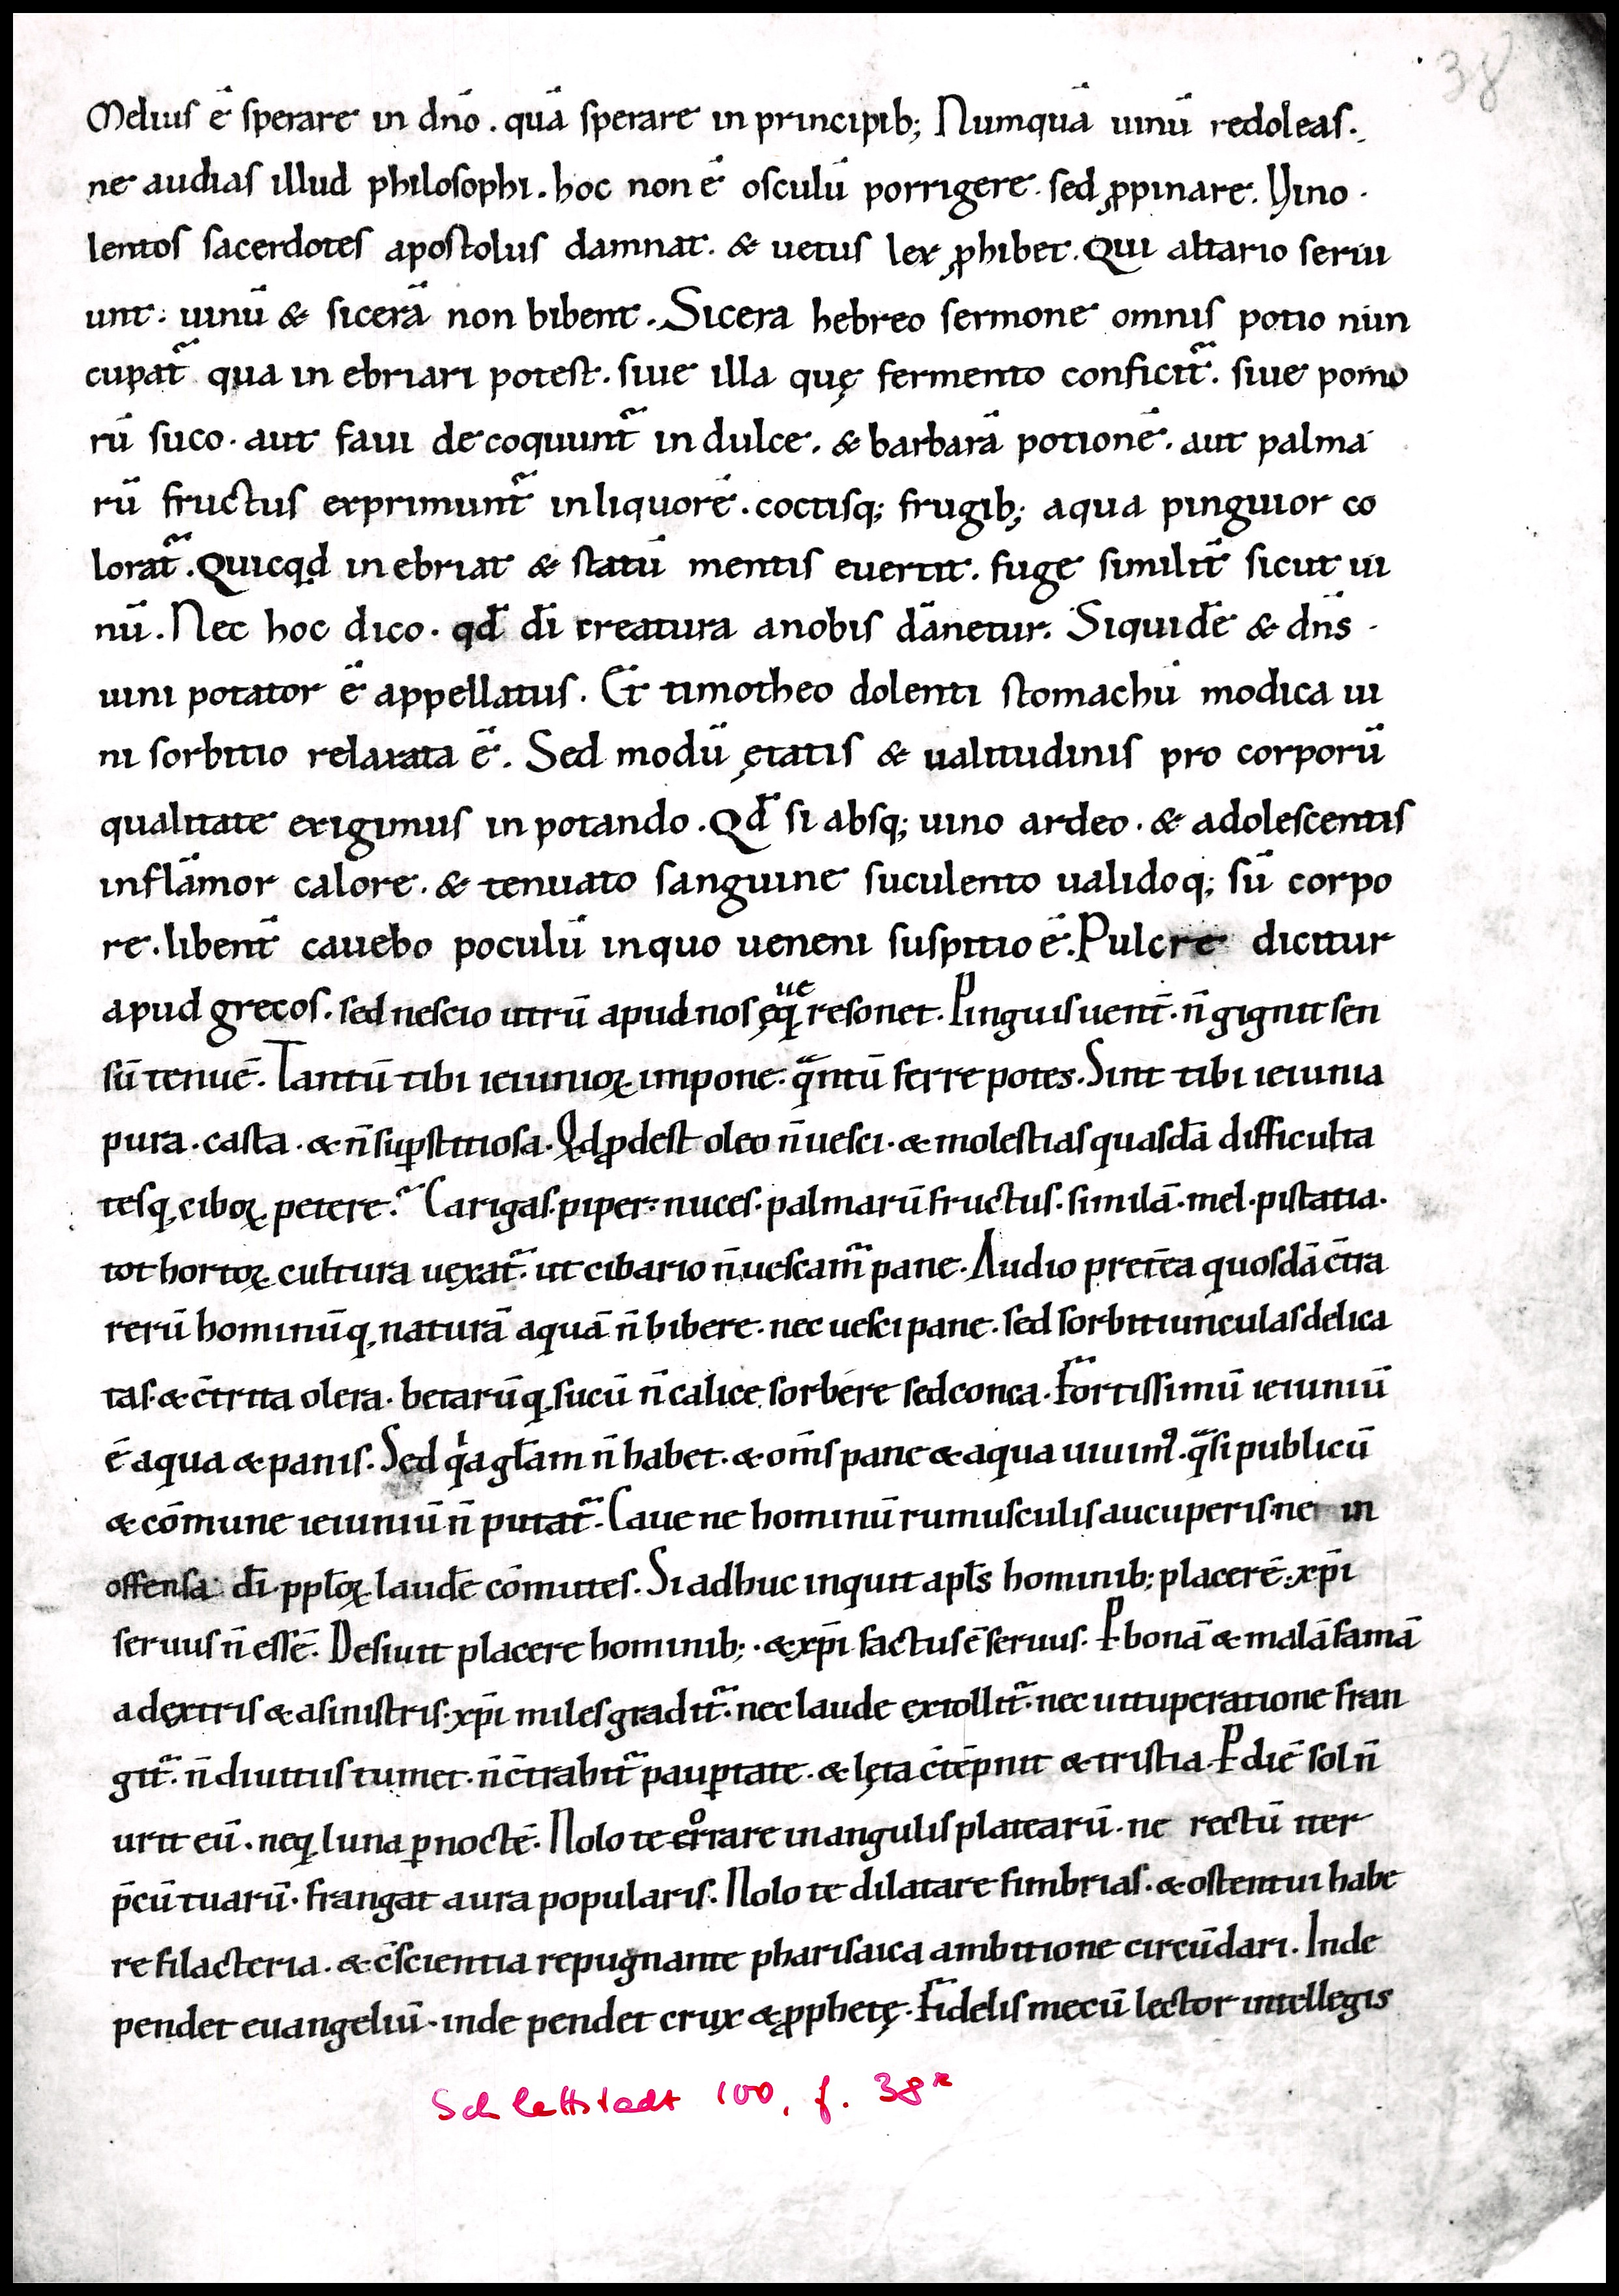 38
Melius ē sperare in dn̄o . quā sperare in principib; Numquā uinū redoleas.
ne audias illud philosophi . hoc non ē osculū porrigere . sed ꝓpinare . Vino .
lentos sacerdotes apostolus damnat . & uetus lex ꝓhibet . Qui altario seriu
unt . uinū & sicerā non bibent . Sicera hebreo sermone omnis potio nun
cupat᷑ qua in ebriari potest . siue illa quę fermento conficit᷑ . siue pomo
rū suco . aut faui de coquunt᷑ in dulce . & barbarā potionē . aut palma
rū fructus exprimunt᷑ in liquorē . coctisq; frugib; aqua pinguior co
lorat᷑ . Quicqd in ebriat & statū mentis euertit . fuge similit̄ sicut ui
nū . Nec hoc dico . qd̄ dī creatura anobis dānetur . Siquidē & dn̄s .
uini potator ē appellatus . Et timotheo dolenti stomachū modica ui
ni sorbitio relaxata ē . Sed modū ętatis & ualitudinis pro corporū
qualitate exigimus in potando . Qd̄ si absq; uino ardeo . & adolescentis
inflāmor calore . & tenuato sanguine suculento ualidoq; sū corpo
re . libent̄ cauebo poculū in quo ueneni suspitio ē . Pulcre dicitur
apud grecos . sed nescio utrū apud nos ęq̄ue resonet . Pinguis uent̄ . n̄ gignit sen
sū tenuē . Tantū tibi ieiunioꝝ impone . qᷓntū ferre potes . Sint tibi ieiunia
pura . casta . & n̄ suꝑstitiosa . Qd ꝓdest oleo n̄ uesci . & molestias quasdā difficulta
tesq, ciboꝝ petere . Carigas . piper . nuces . palmarū fructus . similā . mel . pistatia .
tot hortoꝝ cultura uexat᷑ . ut cibario n̄ uescam᷑ pane . Audio pretēa quosdā c̄tra
rerū hominūq, naturā aquā n̄ bibere . nec uesci pane . sed sorbitiunculas delica
tas . & c̄trita olera . betarūq, sucū n̄ calice sorbere sed conca . Fortissimū ieiuniū
ē aqua & panis . Sed qͥa gl̄am n̄ habet . & om̄s pane & aqua uiuimꝰ . qᷓsi publicū
& cōmune ieiuniū n̄ putat᷑ . Caue ne hominū rumusculis aucuperis . ne in
offensa dī . ppl̄oꝝ laudē cōmutes . Si adhuc inquit apl̄s hominib; placerē . xp̄i
seruus n̄ essē . Desiuit placere hominib; . & xp̄i factus ē seruus . Ꝑ bonā & malā famā
a dextris & a sinistris . xp̄i miles gradit᷑ . nec laude extollit᷑ . nec uituperatione fran
git᷑ . n̄ diuitiis tumet . n̄ c̄trahit᷑ pauꝑtate . & lęta c̄tēpnit & tristia . Ꝑ diē sol n̄
urit eū . neq, luna ꝑ noctē . Nolo te orrare in angulis platearū . ne rectū iter
p̄cū tuarū . frangat aura popularis . Nolo te dilatare fimbrias . & ostentui habe
re filacteria . & c̄scientia repugnante pharisaica ambitione circūdari . Inde
pendet euangeliū . inde pendet crux & ꝓphetę . Fidelis mecū lector intellegis
Schlettstadt 100, f. 38ʳ